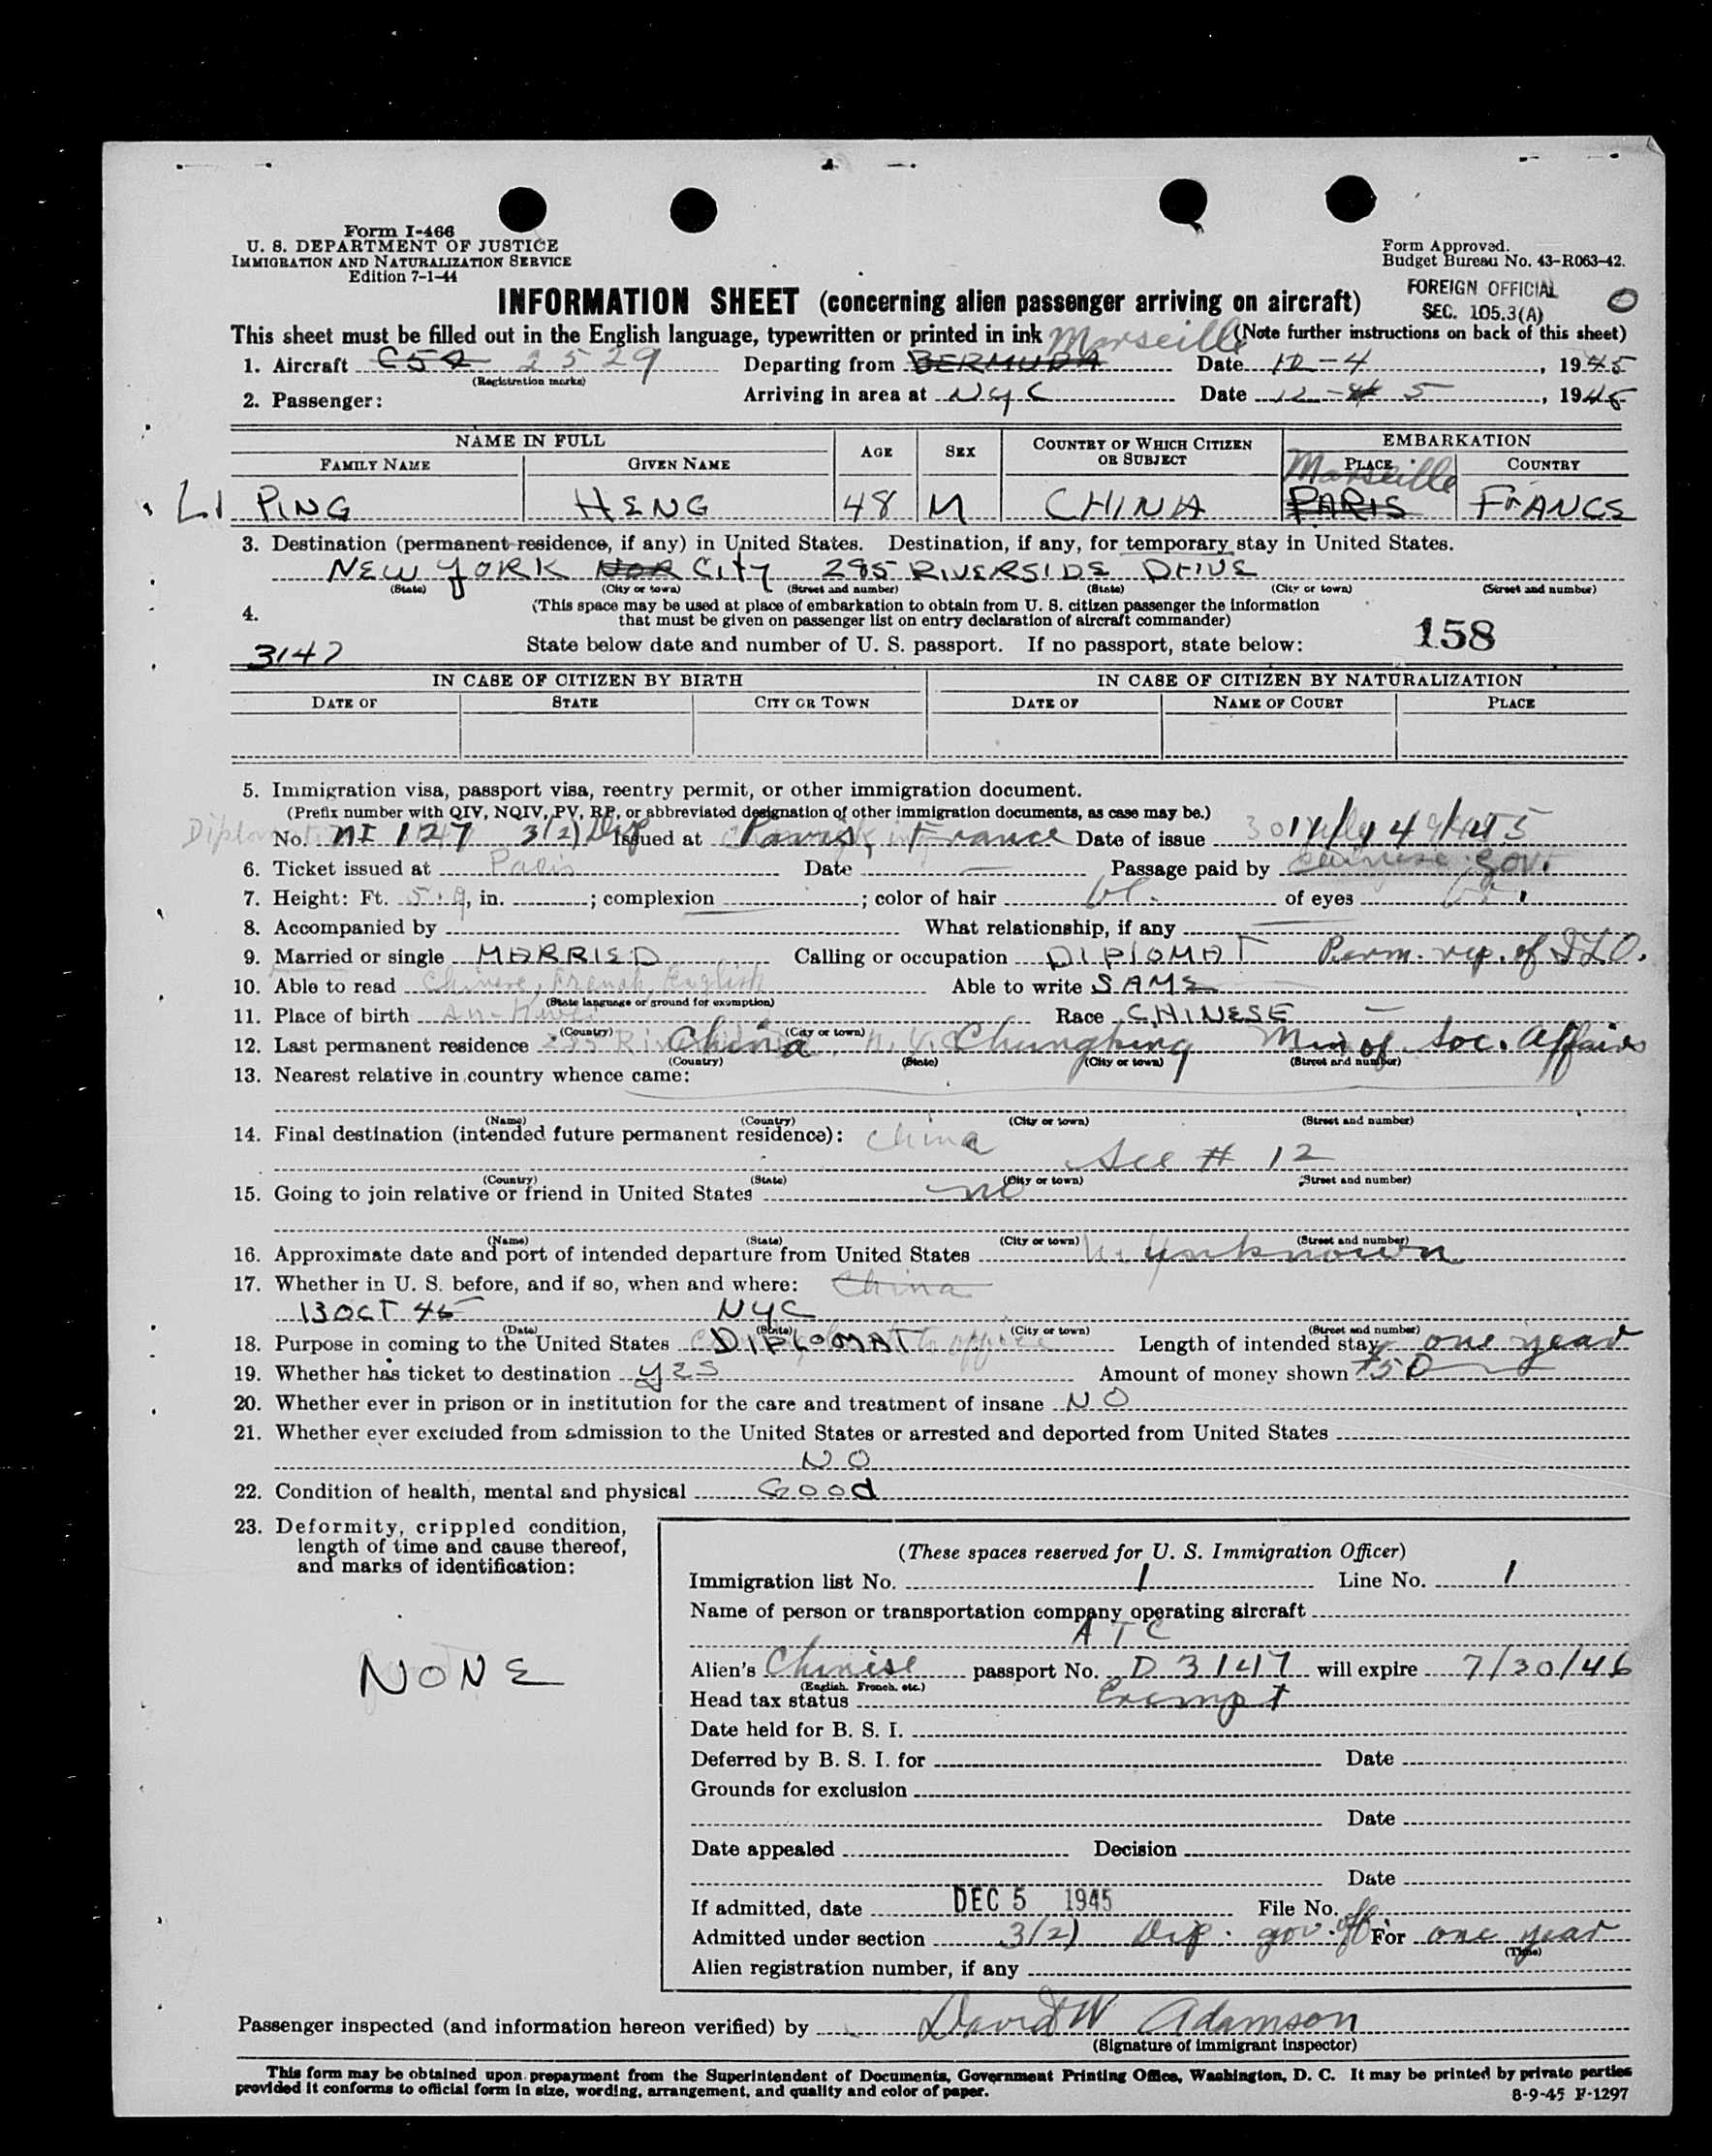 Form I-466
U. S. DEPARTMENT OF JUSTICE
IMMIGRATION AND NATURALIZATION SERVICE
Edition 7-1-44
Form Approved.
Budget Bureau No. 43-R063-42.
FOREIGN OFFICIAL
SEC. 105.3(A)
INFORMATION SHEET (concerning alien passenger arriving on aircraft)
This sheet must be filled out in the English language, typewritten or printed in ink (Note further instructions on back of this sheet)
Marseille
1. Aircraft C54 2529 Departing from BERMUDA Date 12-4, 1945
(Registration marks)
2. Passenger: Arriving in area at NYC Date 12-5, 1945
NAME IN FULL AGE SEX COUNTRY OF WHICH CITIZEN OR SUBJECT EMBARKATION
FAMILY NAME GIVEN NAME PLACE COUNTRY
Marseille
LI PING HENG 48 M CHINA PARIS FRANCE
3. Destination (permanent residence, if any) in United States. Destination, if any, for temporary stay in United States.
NEW YORK NOR CITY 285 RIVERSIDE DRIVE
(State) (City or town) (Street and number) (State) (City or town) (Street and number)
4. (This space may be used at place of embarkation to obtain from U. S. citizen passenger the information
that must be given on passenger list on entry declaration of aircraft commander)
3147 State below date and number of U. S. passport. If no passport, state below: 158
IN CASE OF CITIZEN BY BIRTH IN CASE OF CITIZEN BY NATURALIZATION
DATE OF STATE CITY OR TOWN DATE OF NAME OF COURT PLACE
5. Immigration visa, passport visa, reentry permit, or other immigration document.
(Prefix number with QIV, NQIV, PV, RP, or abbreviated designation of other immigration documents, as case may be.)
No. NI 127 3(2) Dip Issued at Paris, France Date of issue 11/14/45
6. Ticket issued at Paris Date — Passage paid by Chinese Gov.
7. Height: Ft. 5.9, in. ; complexion ; color of hair bl. of eyes br.
8. Accompanied by What relationship, if any
9. Married or single MARRIED Calling or occupation DIPLOMAT Perm. rep. of ILO.
10. Able to read Chinese, French, English Able to write SAME
(State language or ground for exemption)
11. Place of birth An-Hwei Race CHINESE
(Country) (City or town)
12. Last permanent residence China Chungking Min of Soc. Affairs
(Country) (State) (City or town) (Street and number)
13. Nearest relative in country whence came:
(Name) (Country) (City or town) (Street and number)
14. Final destination (intended future permanent residence): China
See # 12
(Country) (State) (City or town) (Street and number)
15. Going to join relative or friend in United States no
(Name) (State) (City or town) (Street and number)
16. Approximate date and port of intended departure from United States Unknown
17. Whether in U. S. before, and if so, when and where: China
13 OCT 45 NYC
(Date) (State) (City or town) (Street and number)
18. Purpose in coming to the United States DIPLOMAT Length of intended stay one year
19. Whether has ticket to destination YES Amount of money shown $50
20. Whether ever in prison or in institution for the care and treatment of insane NO
21. Whether ever excluded from admission to the United States or arrested and deported from United States
NO
22. Condition of health, mental and physical GOOD
23. Deformity, crippled condition,
length of time and cause thereof,
and marks of identification:
NONE
(These spaces reserved for U. S. Immigration Officer)
Immigration list No. 1 Line No. 1
Name of person or transportation company operating aircraft
ATC
Alien's Chinese passport No. D 3147 will expire 7/30/46
(English, French, etc.)
Head tax status Exempt
Date held for B. S. I.
Deferred by B. S. I. for Date
Grounds for exclusion
Date
Date appealed Decision
Date
If admitted, date DEC 5 1945 File No.
Admitted under section 3(2) Dip. gov. off. For one year
(Time)
Alien registration number, if any
Passenger inspected (and information hereon verified) by David W Adamson
(Signature of immigrant inspector)
This form may be obtained upon prepayment from the Superintendent of Documents, Government Printing Office, Washington, D. C. It may be printed by private parties
provided it conforms to official form in size, wording, arrangement, and quality and color of paper.
8-9-45 F-1297